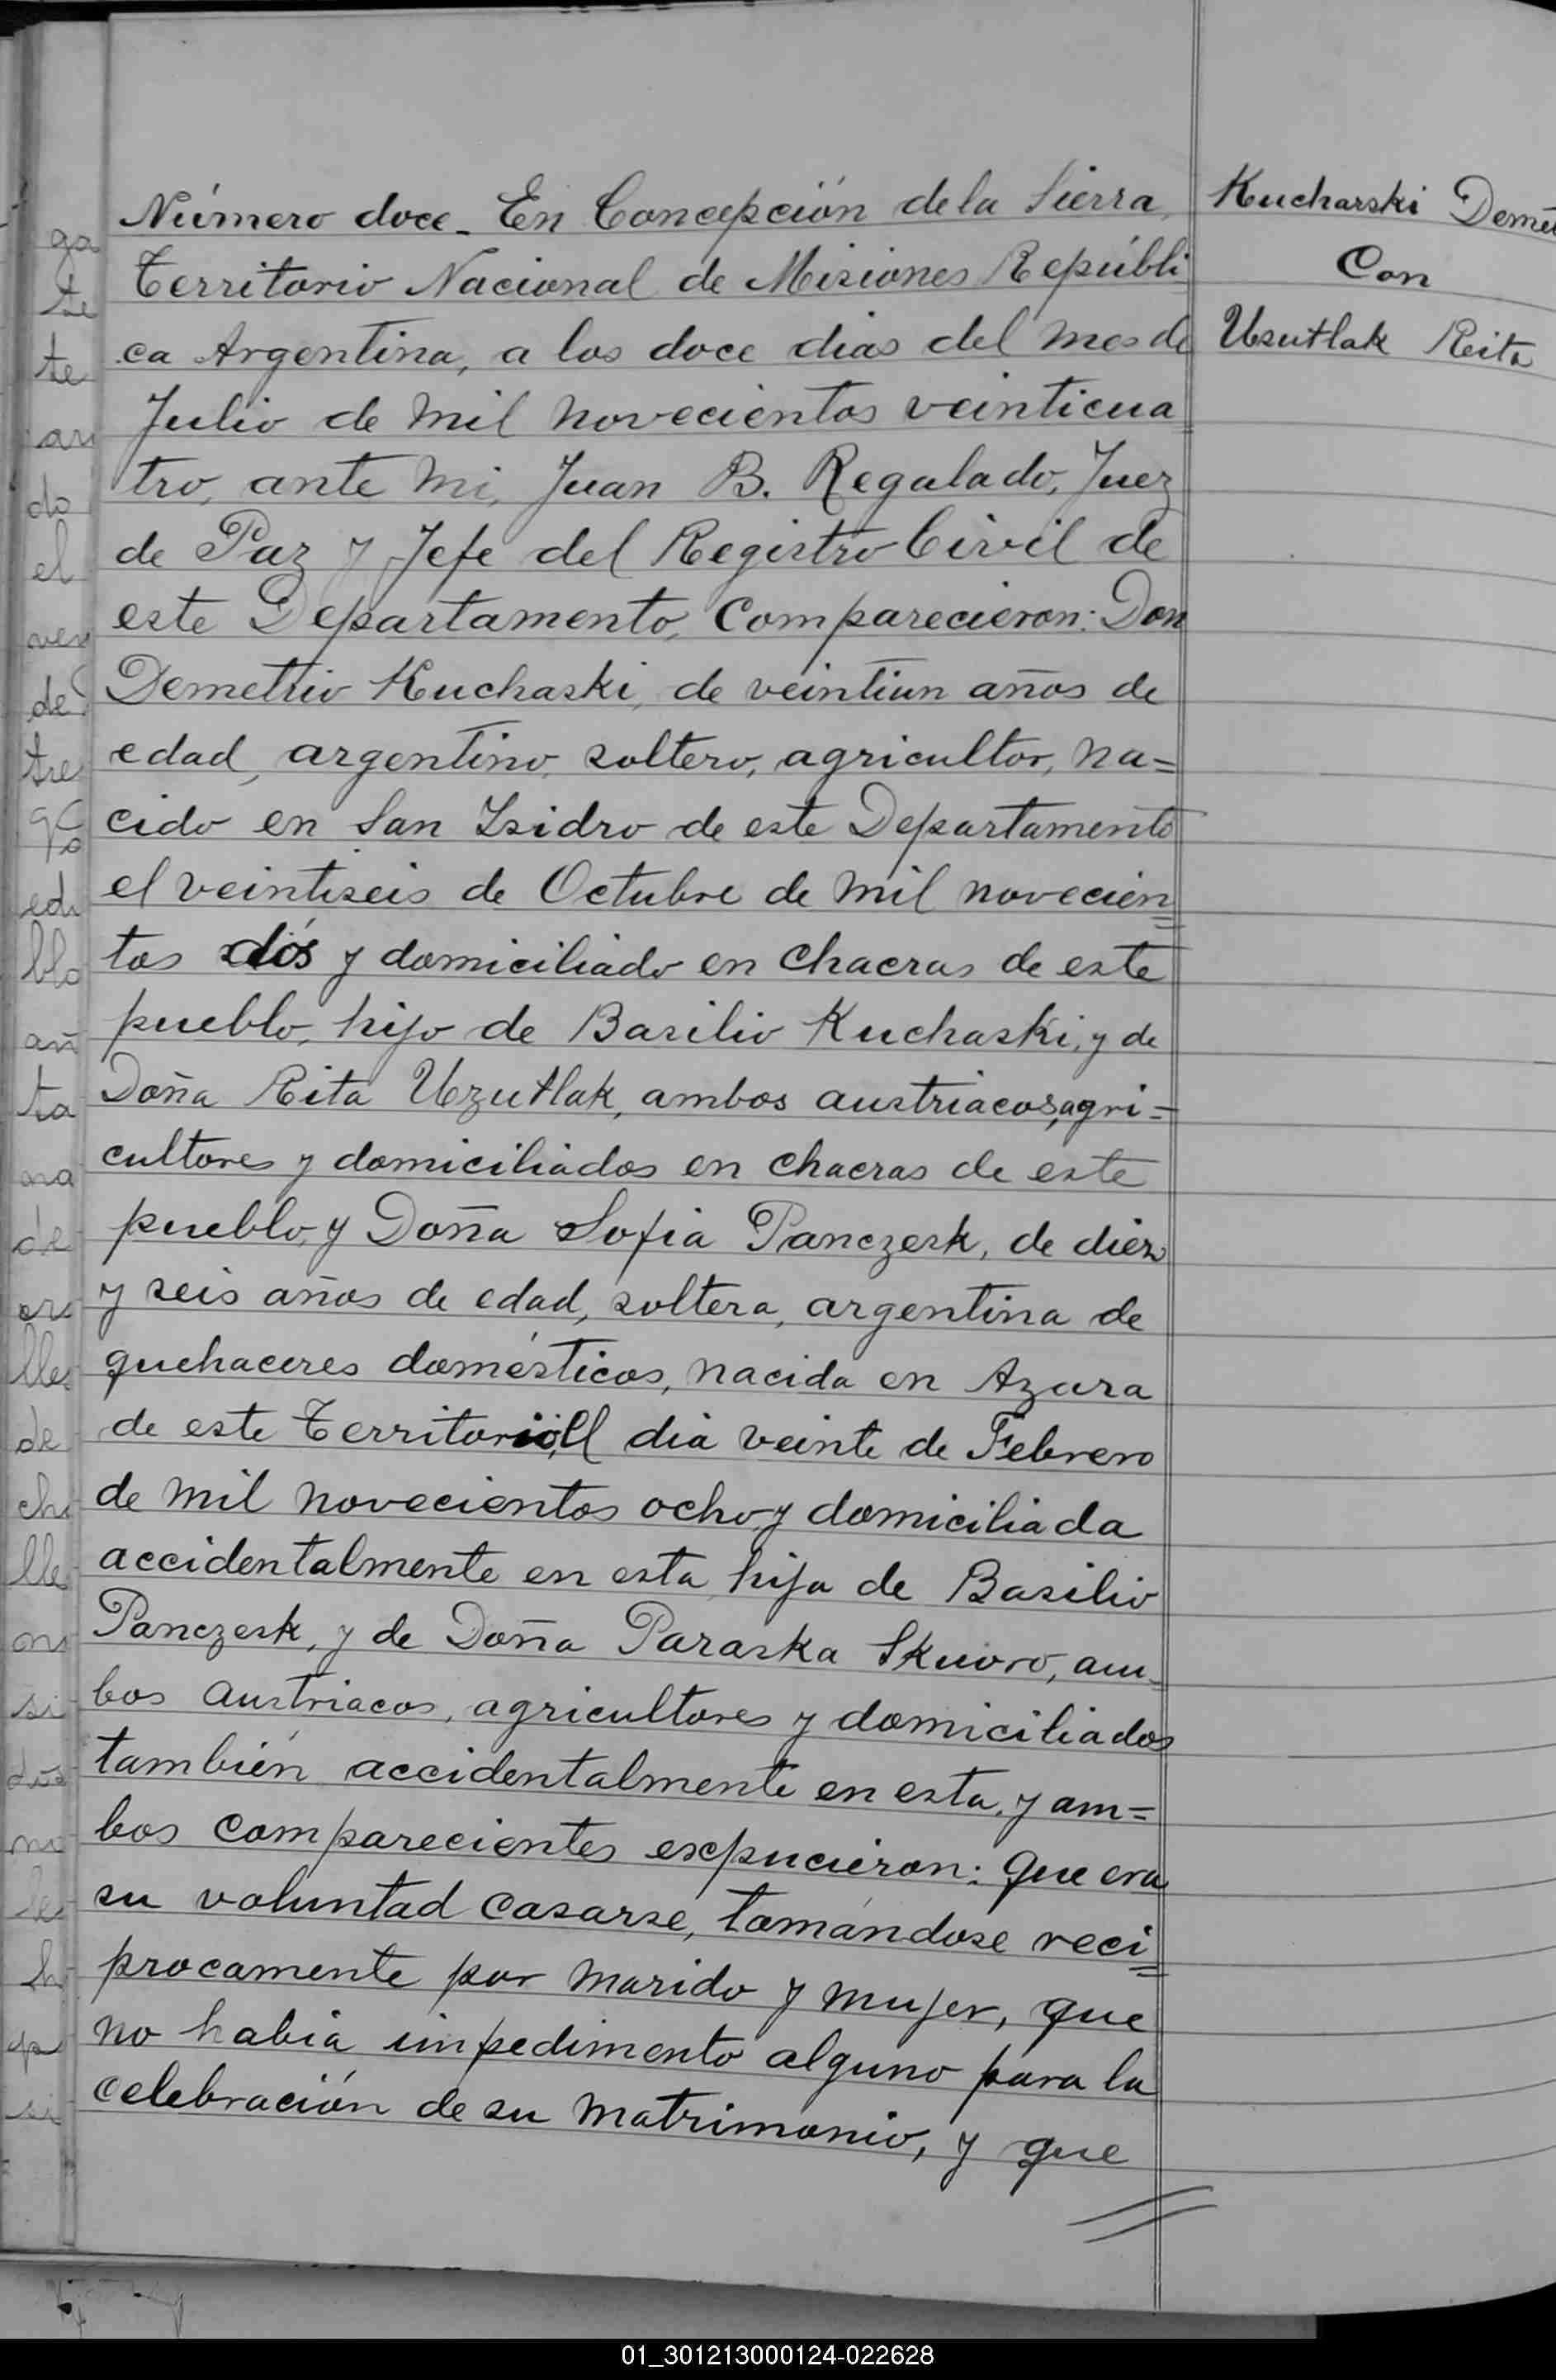 Número doce. En Concepción de la Sierra,
Territorio Nacional de Misiones Repúbli-
ca Argentina, a los doce dias del mes de
Julio de mil novecientos veinticua=
tro, ante mi, Juan B. Regalado, Juez
de Paz y Jefe del Registro Civil de
este Departamento, Comparecieron: Don
Demetrio Kuchaski, de veintiun años de
edad, argentino, soltero, agricultor, na=
cido en San Isidro de este Departamento
el veintiseis de Octubre de mil novecien=
tos dós y domiciliado en chacras de este
pueblo, hijo de Basilio Kuchaski, y de
Doña Rita Uzutlak, ambos austriacos, agri=
cultores y domiciliados en chacras de este
pueblo, y Doña Sofia Panczesk, de diez
y seis años de edad, soltera, argentina de
quehaceres domésticos, nacida en Azara
de este Territorio, el dia veinte de Febrero
de mil novecientos ocho y domiciliada
accidentalmente en esta, hija de Basilio
Panczesk, y de Doña Paraska Skuoro, am-
bos austriacos, agricultores y domiciliados
también accidentalmente en esta, y am=
bos comparecientes expucieron: Que era
su voluntad casarse, tomándose reci=
procamente por marido y mujer, que
no habia impedimento alguno para la
celebración de su matrimonio, y que
Kucharski Demet
Con
Usutlak Reita
ga
te
te
do
el
de
tre
edi
blo
añ
ta
na
de
lle
de
ch
lle
si
dos
no
h
si
01_301213000124-022628